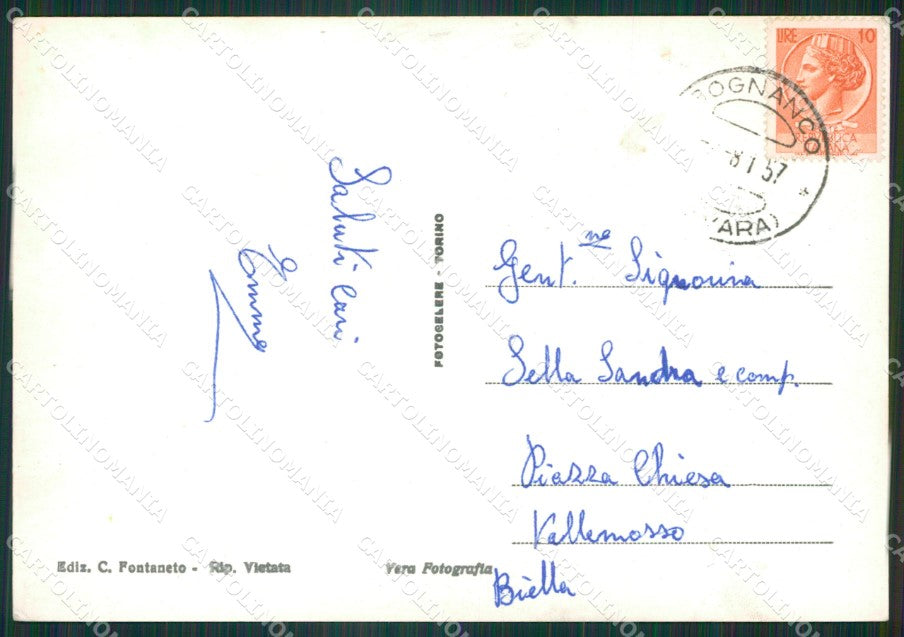 LIRE 10
BOGNANCO
8 1 57
Saluti Cari
Emma
FOTOCELERE - TORINO
Gent.ne Signorina
Sella Sandra e comp.
Piazza Chiesa
Vallemosso
Biella
Ediz. C. Fontaneto - Rip. Vietata
Vera Fotografia
CARTOLINOMANIA